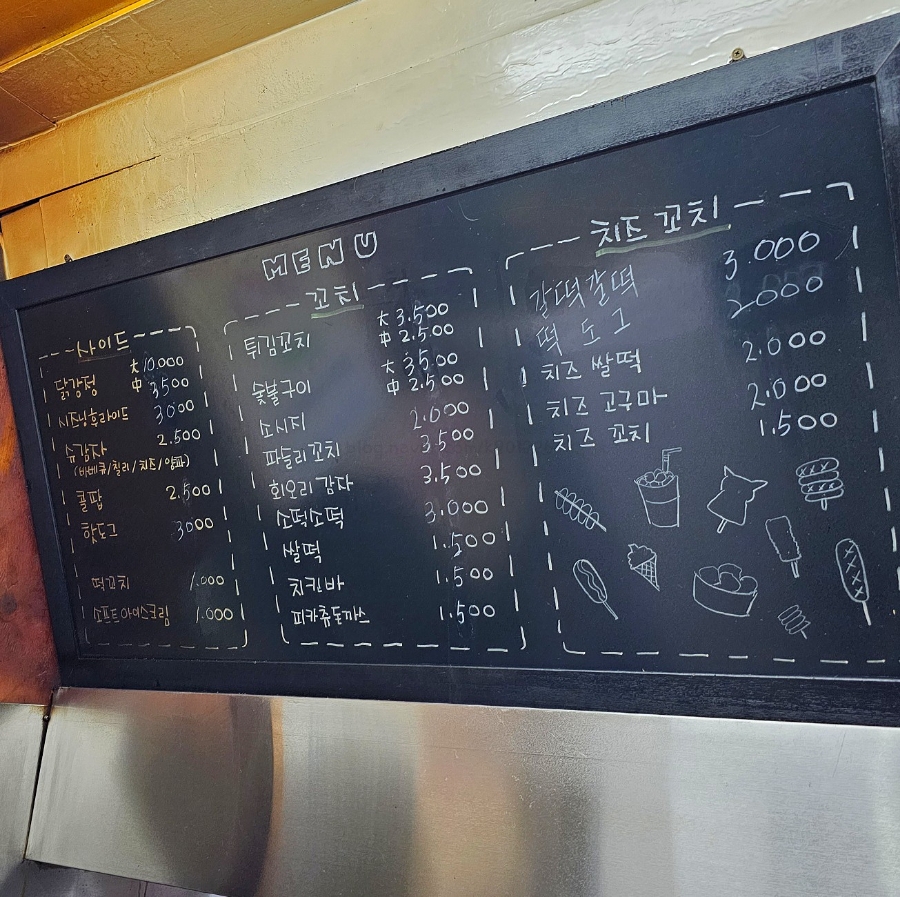 MENU
사이드
닭강정 大 10.000
中 3,500
시즈닝후라이드 3000
슈감자 2.500
(바베큐/칠리/치즈/양파)
콜팝 2.500
핫도그 3000
떡꼬치 1.000
소프트아이스크림 1.000
꼬치
튀김꼬치 大 3.500
中 2.500
숯불구이 大 35.00
中 2.500
소시지 2.000
파돌리꼬치 3.500
회오리감자 3.500
소떡소떡 3.000
쌀떡 1.500
치킨바 1.500
피카츄돈까스 1.500
치즈 꼬치
갈떡갈떡 3.000
떡도그 2000
치즈 쌀떡 2.000
치즈 고구마 2.000
치즈 꼬치 1.500